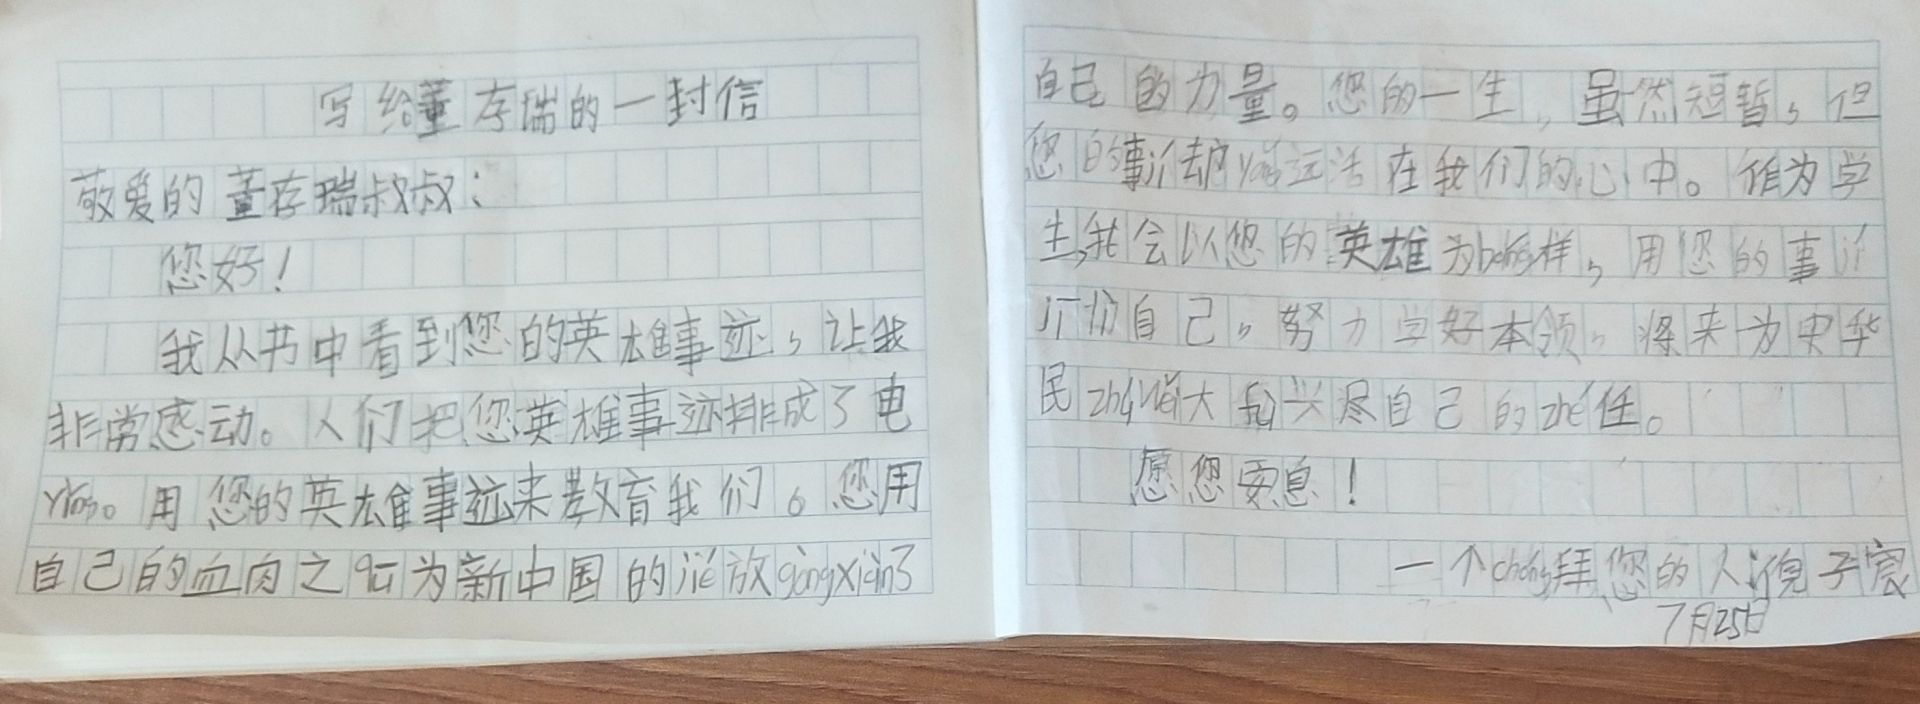 写给董存瑞的一封信
敬爱的董存瑞叔叔：
您好！
我从书中看到您的英雄事迹，让我
非常感动。人们把您英雄事迹排成了电
ying。用您的英雄事迹来教育我们。您用
自己的血肉之qu为新中国的jiě放gòngxiàn了
自己的力量。您的一生，虽然短暂，但
您的事jì却yǒng远活在我们的心中。作为学
生，我会以您的英雄为bǎng样，用您的事jì
自己，努力学好本领，将来为中华
民 大 兴尽自己的zé任。
愿您安息！
一个chóng拜您的人 子宸
7月25日